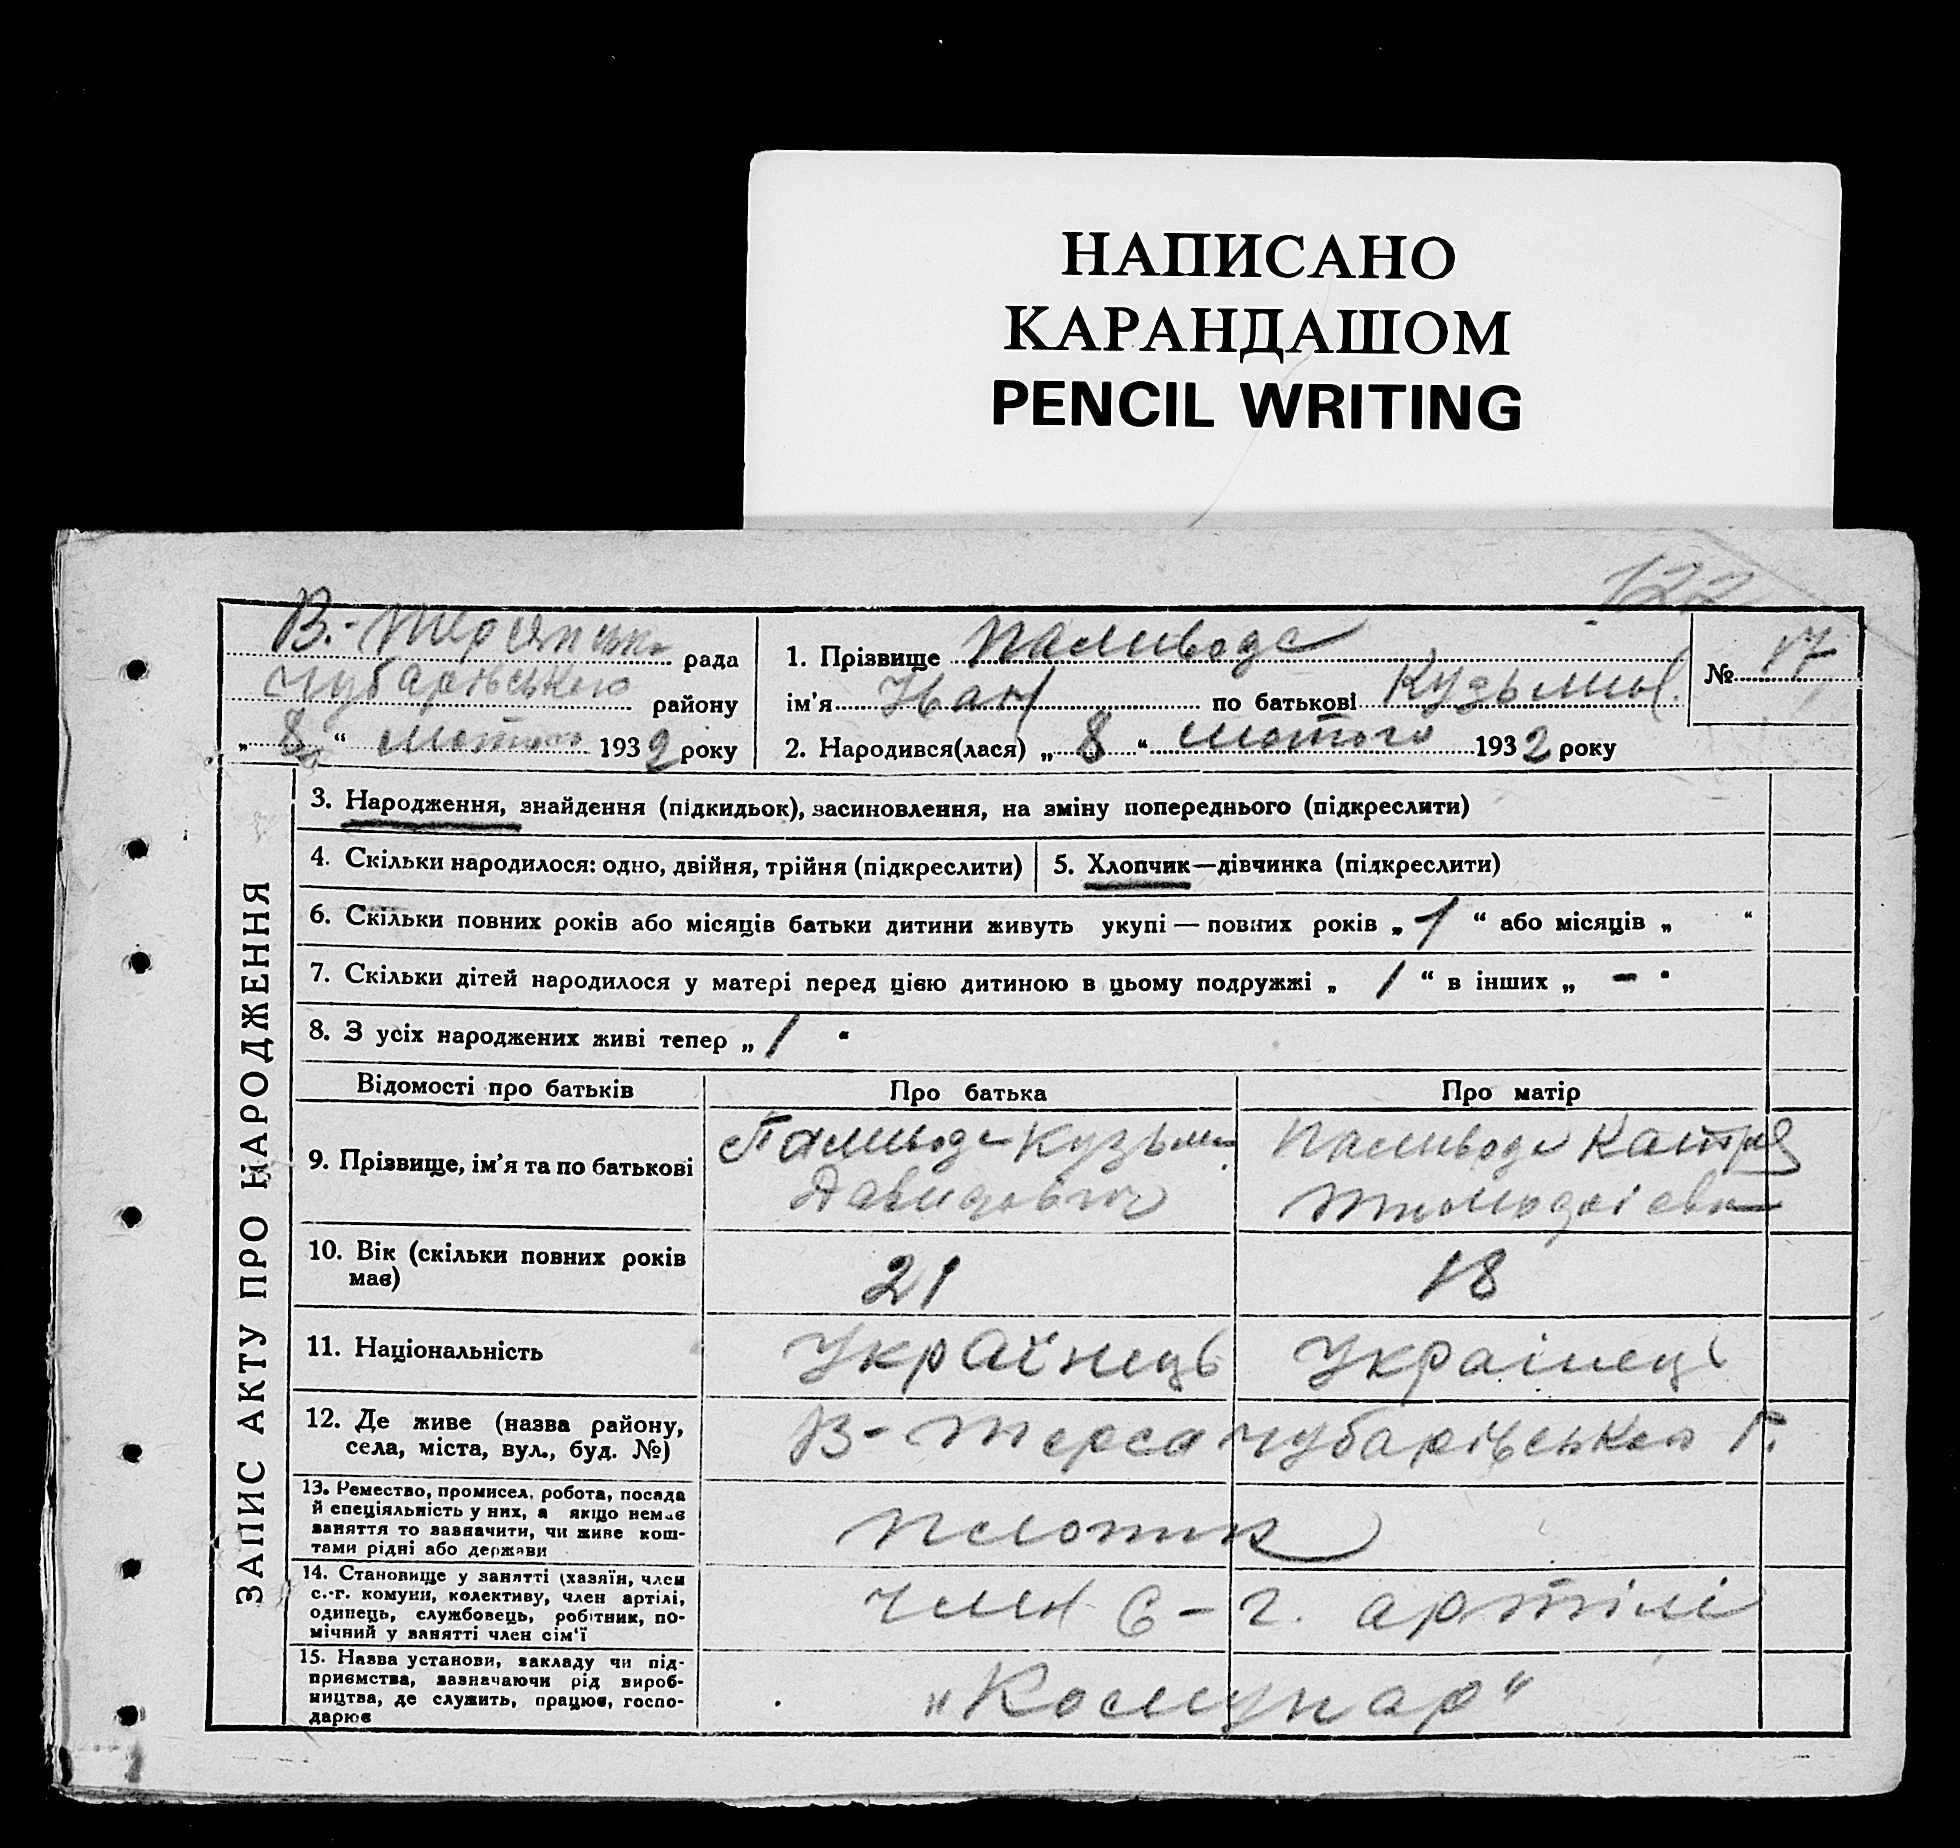 НАПИСАНО
КАРАНДАШОМ
PENCIL WRITING
122
В.-Терсянська рада
Чубарівського району
„ 8 “ лютого 1932 року
1. Прізвище Паливода
ім’я Іван по батькові Кузьмич
2. Народився(лася) „ 8 “ лютого 1932 року
№ 17
ЗАПИС АКТУ ПРО НАРОДЖЕННЯ
3. Народження, знайдення (підкидьок), засиновлення, на зміну попереднього (підкреслити)
4. Скільки народилося: одно, двійня, трійня (підкреслити)
5. Хлопчик—дівчинка (підкреслити)
6. Скільки повних років або місяців батьки дитини живуть укупі — повних років „ 1 “ або місяців „ “
7. Скільки дітей народилося у матері перед цією дитиною в цьому подружжі „ 1 “ в інших „ - “
8. З усіх народжених живі тепер „ 1 “
Відомості про батьків
Про батька
Про матір
9. Прізвище, ім’я та по батькові
Паливода Кузьма
Давидович
Паливода Катря
10. Вік (скільки повних років
має)
21
18
11. Національність
Українець
Українець
12. Де живе (назва району,
села, міста, вул., буд. №)
В-Терса Чубарівського р.
13. Ремество, промисел, робота, посада
й спеціяльність у них, а якщо немає
заняття то зазначити, чи живе кош-
тами рідні або держави
14. Становище у занятті (хазяїн, член
с.-г. комуни, колективу, член артілі,
одинець, службовець, робітник, по-
мічний у занятті член сім’ї
член с-г. артілі
15. Назва установи, закладу чи під-
приємства, зазначаючи рід вироб-
ництва, де служить, працює, госпо-
дарює
„Комунар“